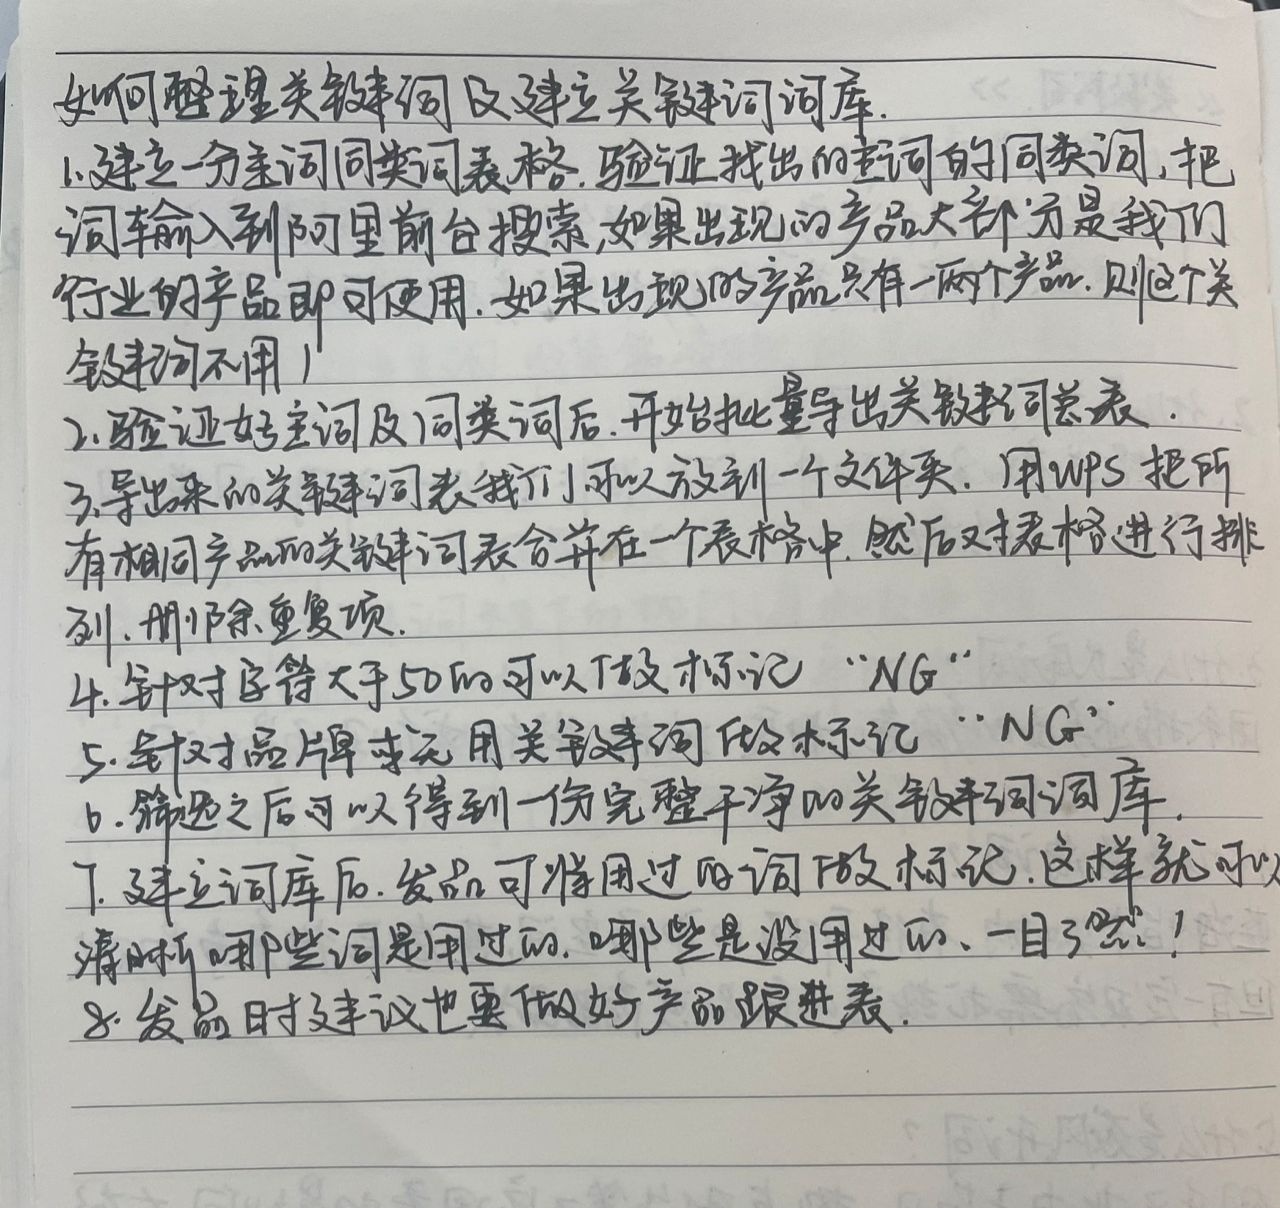 如何整理关键词及建立关键词词库.
1.建立一分主词同类词表格.验证找出的主词的同类词,把
词输入到阿里前台搜索,如果出现的产品大部分是我们
行业的产品即可使用.如果出现的产品只有一两个产品.则这个关
键词不用!
2.验证好主词及同类词后.开始批量导出关键词总表.
3.导出来的关键词表我们可以放到一个文件夹.用WPS把所
有相同产品的关键词表合并在一个表格中.然后对表格进行排
列.删除重复项.
4.针对字符大于50的可以做标记 "NG"
5.针对品牌或无用关键词做标记 "NG"
6.筛选之后可以得到一份完整干净的关键词词库.
7.建立词库后.发品可将用过的词做标记.这样就可以
清晰哪些词是用过的.哪些是没用过的、一目了然!
8.发品时建议也要做好产品跟进表.